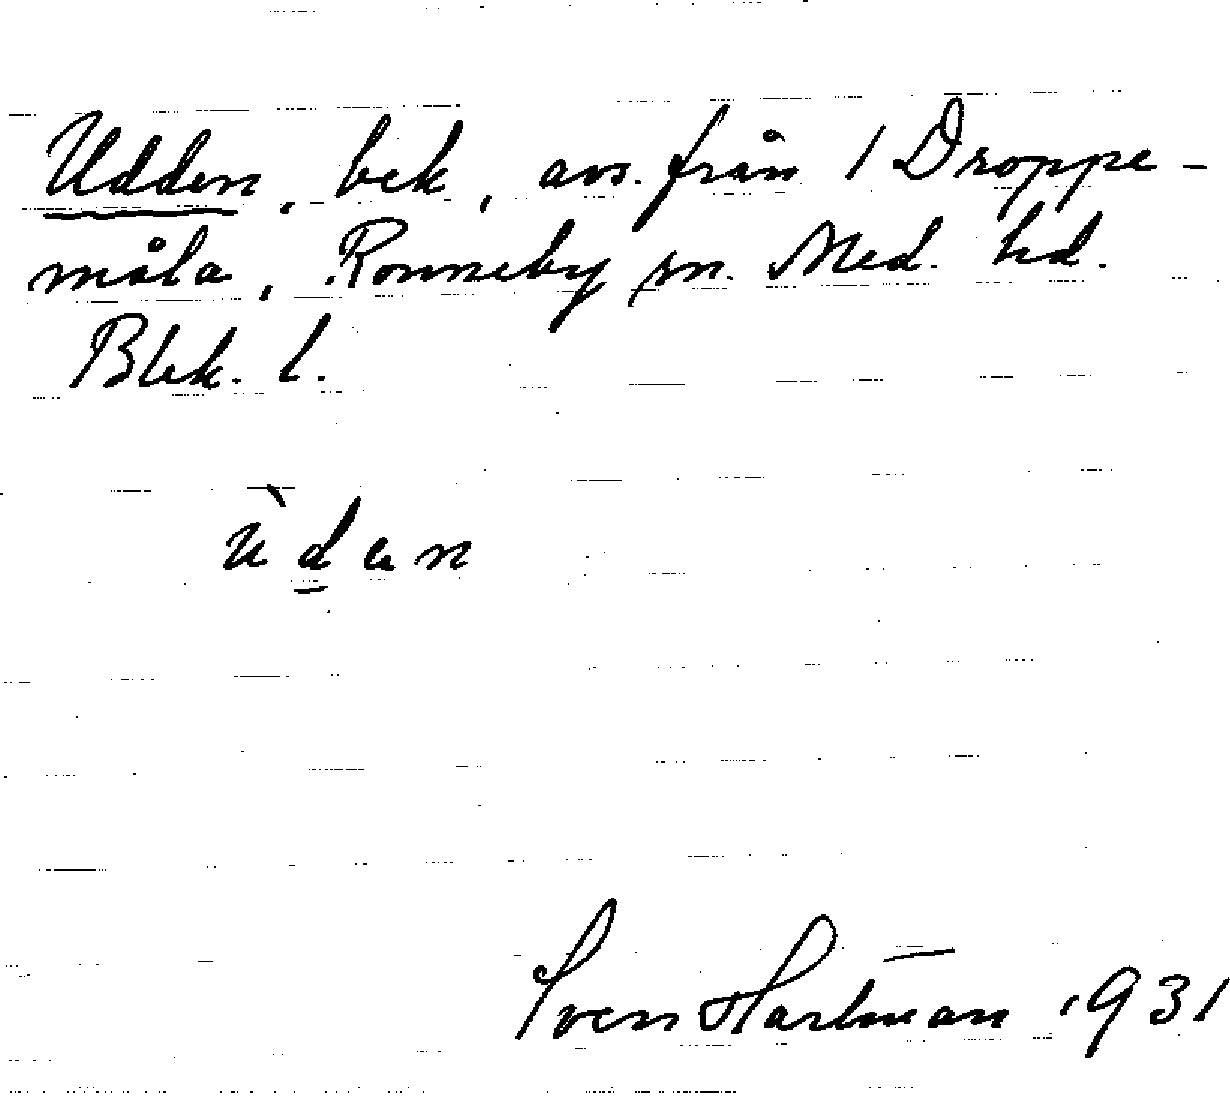 Udden, bek, avs. från 1 Droppe-
måla, Ronneby sn. Med. hd.
Blek. l.
ùdan
Sven Hartman 1931